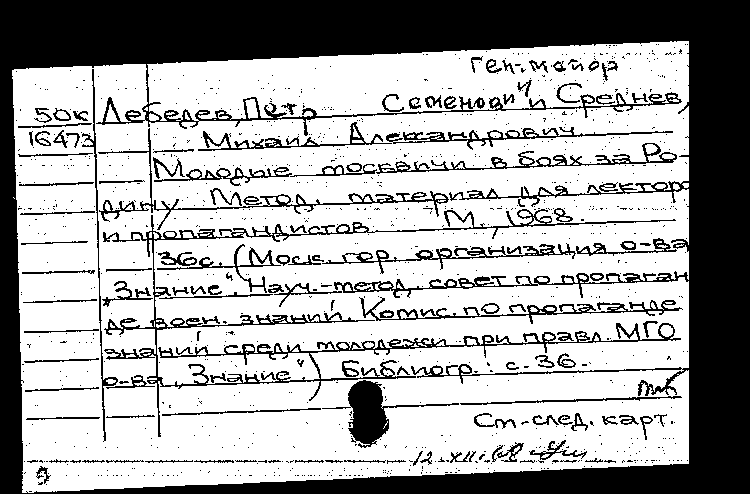 Ген.-майор
50к Лебедев, Петр Семенович и Среднев,
16473 Михаил Александрович
Молодые москвичи в боях за Ро-
дину Метод. материал для лектора
и пропагандистов. М., 1968.
36с. (Моск. гор. организация о-ва
„Знание". Науч.-метод. совет по пропаган
де воен. знаний. Комис. по пропаганде
знаний среди молодежи при правл. МГО
о-ва „Знание".) Библиогр.: с. 36.
См-след. карт.
12.XII.68